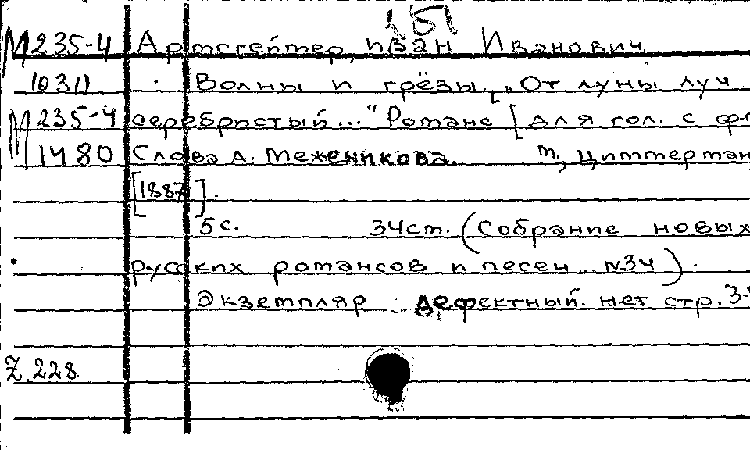 151
М235-4 Артсгеймер, Иван Иванович
1030 Волны и грёзы. "От луны луч
М235-4 серебристый..." Романс [для гол. с ф-
1480 Слова А. Меженикова. М, Циммерман
[1887].
5с. 34см. (Собрание новых
русских романсов и песен N34).
Экземпляр дефектный. нет стр. 3-
Z.228